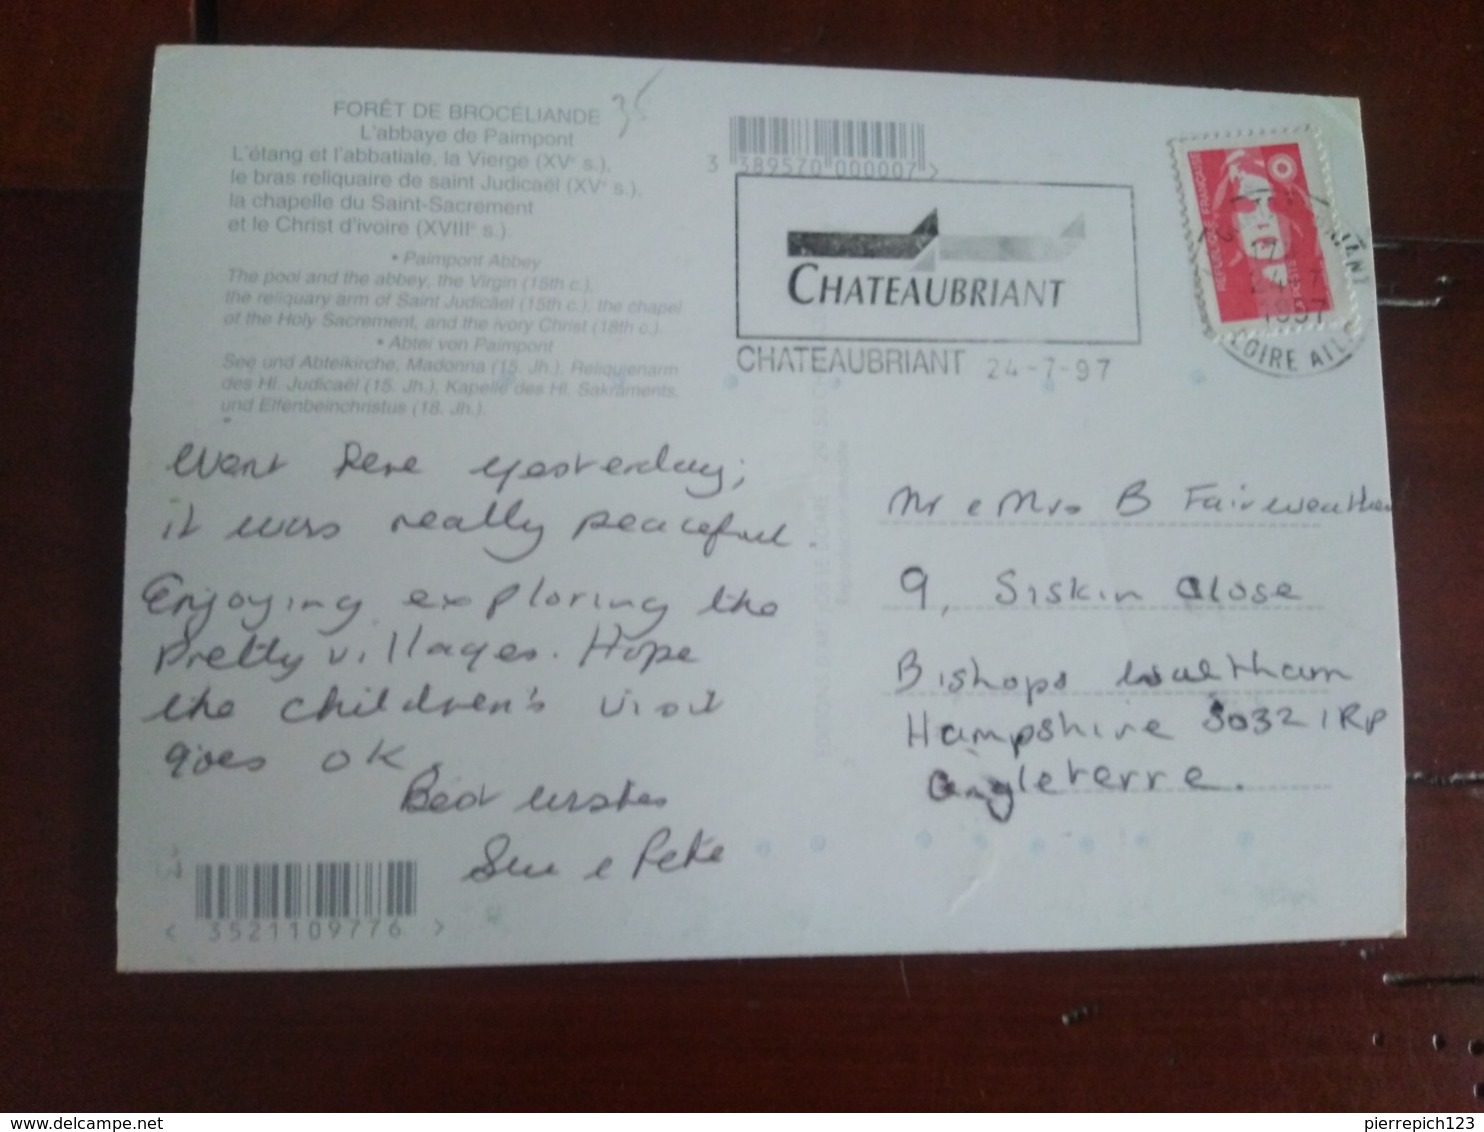 FORÊT DE BROCÉLIANDE
35
L'abbaye de Paimpont
L'étang et l'abbatiale, la Vierge (XVe s.),
le bras reliquaire de saint Judicaël (XVe s.),
la chapelle du Saint-Sacrement
et le Christ d'ivoire (XVIIIe s.)
• Paimpont Abbey
The pool and the abbey, the Virgin (15th c.),
the reliquary arm of Saint Judicäel (15th c.), the chapel
of the Holy Sacrement, and the ivory Christ (18th c.)
• Abtei von Paimpont
See und Abteikirche, Madonna (15. Jh.), Reliquienarm
des Hl. Judicaël (15. Jh.), Kapelle des Hl. Sakraments,
und Elfenbeinchristus (18. Jh.).
3 389570 000007 >
CHATEAUBRIANT
CHATEAUBRIANT 24-7-97
1997
LOIRE
Went here yesterday;
it was really peaceful.
Enjoying exploring the
pretty villages. Hope
the children's visit
goes OK.
Best wishes
Sue & Pete
< 3521109776 >
Mr & Mrs B Fairweather
9, Siskin Close
Bishops Waltham
Hampshire SO32 1RP
Angleterre.
delcampe.net
pierrepich123